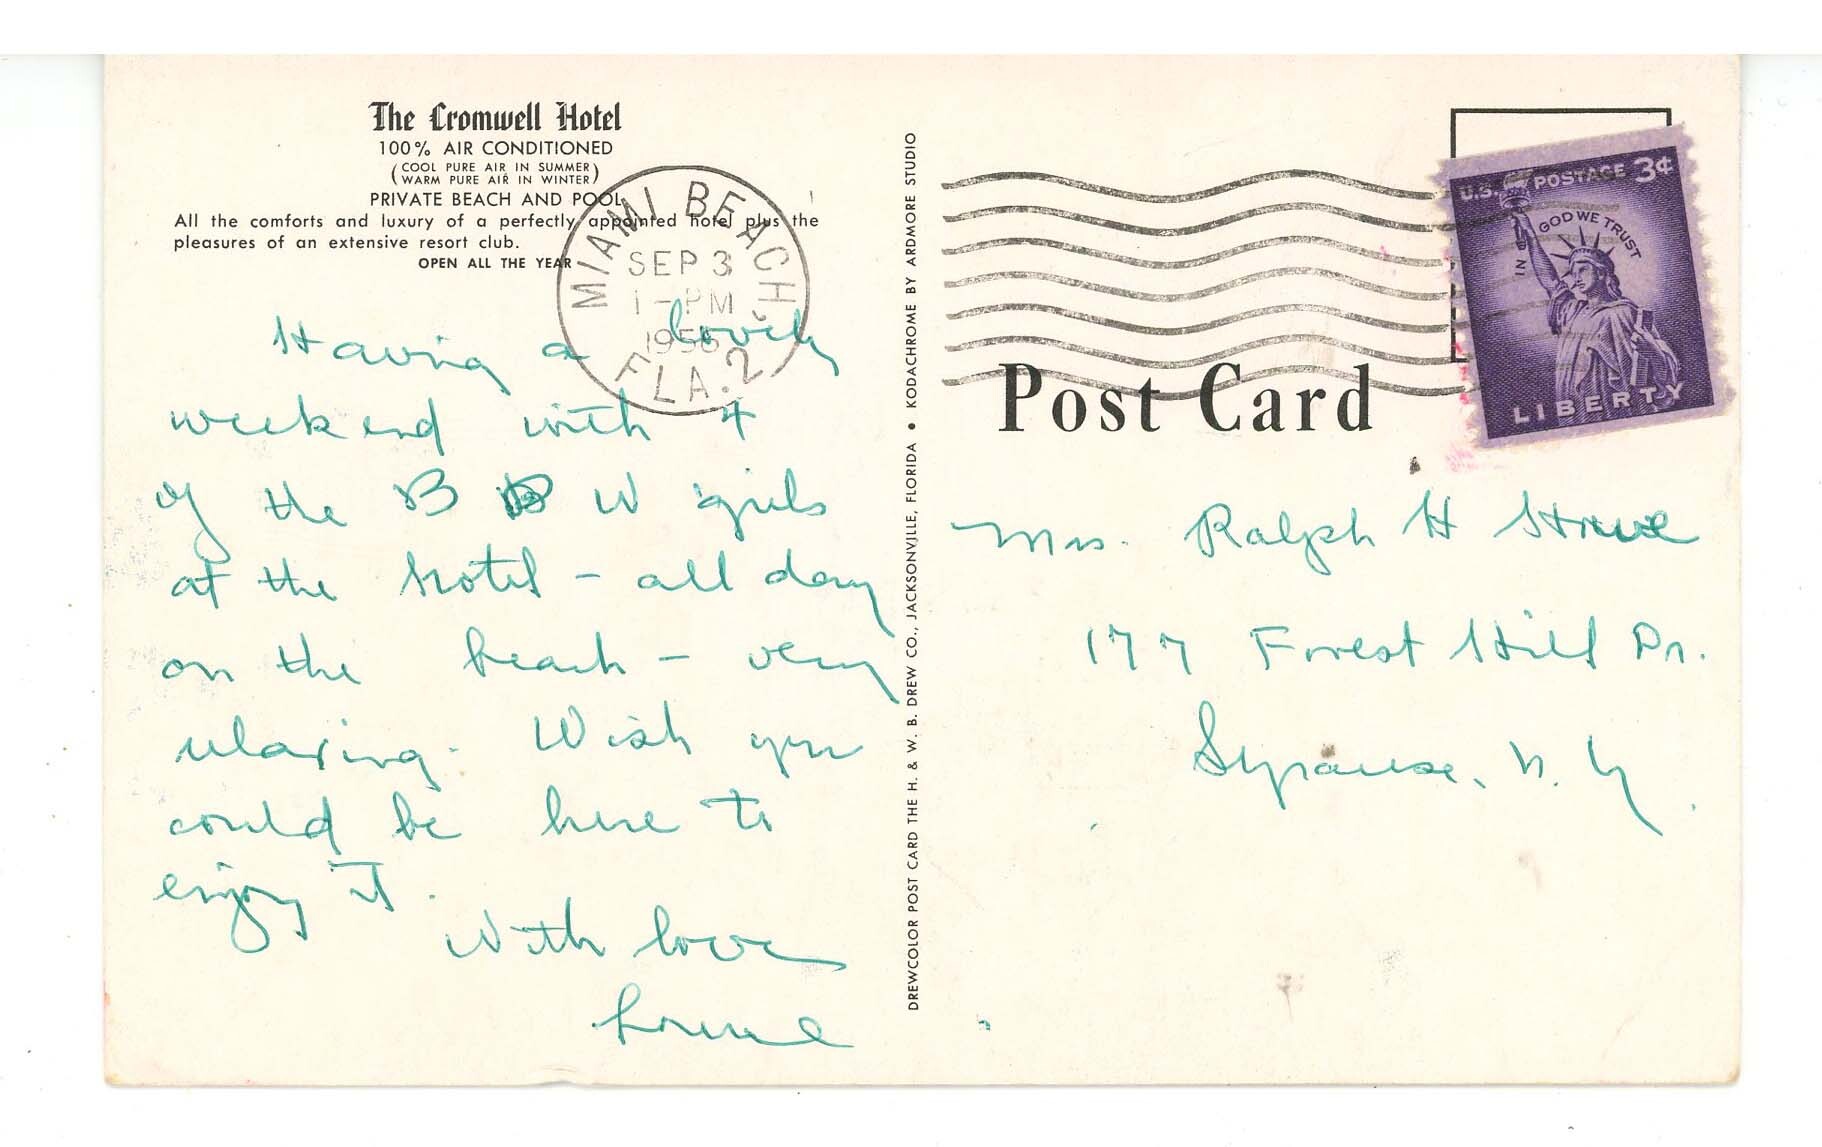 The Cromwell Hotel
100% AIR CONDITIONED
(COOL PURE AIR IN SUMMER)
(WARM PURE AIR IN WINTER)
PRIVATE BEACH AND POOL
All the comforts and luxury of a perfectly appointed hotel plus the
pleasures of an extensive resort club.
OPEN ALL THE YEAR
MIAMI BEACH
SEP 3
1-PM
FLA. 2
Having a lovely
weekend with 4
of the B B W girls
at the hotel - all day
on the beach - very
relaxing. Wish you
could be here to
enjoy it.
With love
DREWCOLOR POST CARD THE H. & W. B. DREW CO., JACKSONVILLE, FLORIDA • KODACHROME BY ARDMORE STUDIO
U.S. POSTAGE 3¢
IN GOD WE TRUST
LIBERTY
Post Card
Mrs. Ralph H
177 Forest Hill Dr.
Syracuse, N. Y.